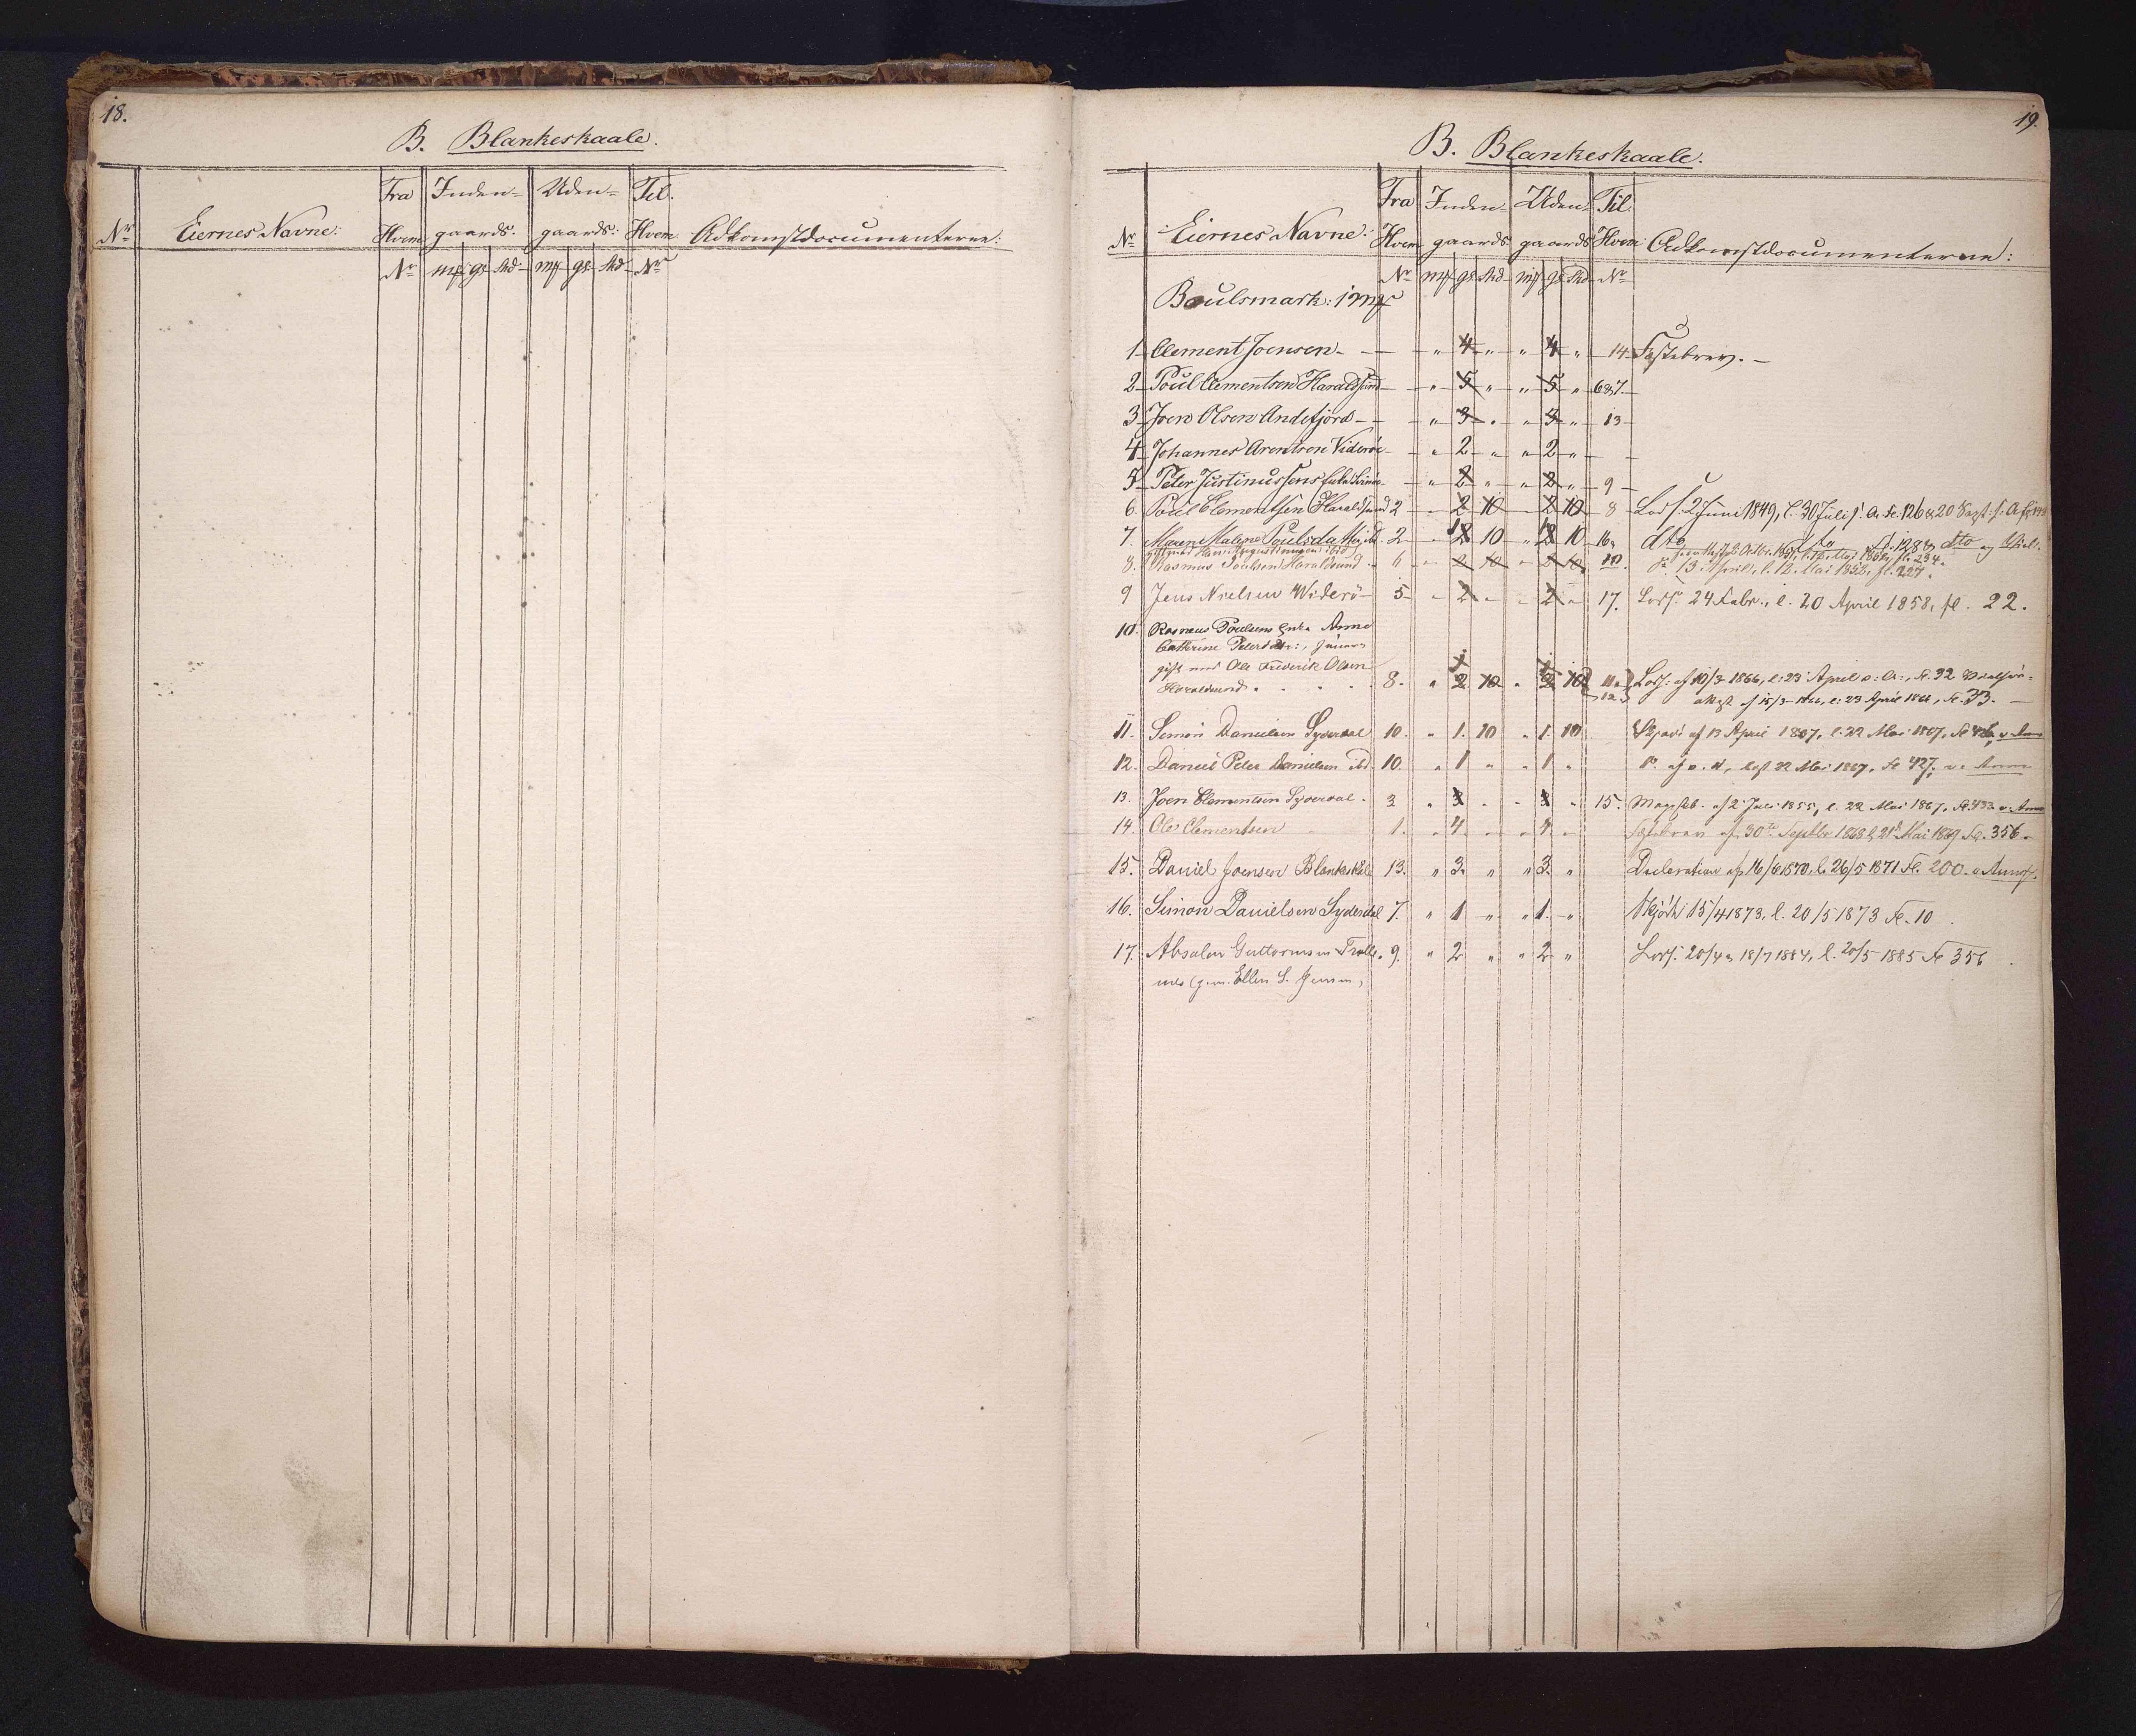 18.
B. Blankeskaale.
Nr Eiernes Navne: Fra Hvem Inden- gaards: Uden- gaards: Til Hvem Adkomstdocumenterne:
Nr mk gl Skd mk gl Skd Nr
19.
B. Blankeskaale.
Nr Eiernes Navne: Fra Hvem Inden- gaards Uden- gaards Til Hvem Adkomstdocumenterne:
Nr mk gl Skd mk gl Skd Nr
Boulsmark: 1 mk
1 Clement Joensen - " 4 " " 4 " 14 Fæstebrev. -
2 Poul Clementsen Haraldsund - " 5 " " 5 " 6 & 7.
3 Joen Olsen Andefjord - " 3 " " 3 " 13
4 Johannes Arentsen Viderøe - " 2 " " 2 "
5 Peter Justinussens - " 2 " " 2 " 9
6. Poul Clementsen Haraldsund 2 - 2 10 - 2 10 8 Lods. 2 Juni 1849, l. 30 Juli s. A. Fo. 126 & 20 Sept. s. A.
7. Maren Malene Poulsdatter, ibd 2 - 2 10 " 2 10 16, dto dto Fo. 128 & dto
8. Rasmus Poulsen Haraldsund 6 - 2 10 - 2 10 10. do 13 April, l. 12 Mai 1852, fl. 227.
9 Jens Nielsen Widerö 5 - 2 - - 2 - 17. Lods. 24 Febr., l. 20 April 1858, fl. 22.
10. Rasmus Poulsens Enke Anne
Cathrine Petersdtr:,
gift med Ole Frederik Olsen
Haraldsund. 8. " 2 10 " 2 10 11 & 12 Lods: af 10/3 1866, l: 23 April s: A:, Fo. 32
af 15/3 1866, l: 23 April 1866, Fo. 33. -
11. Simon Danielsen Syderdal 10. " 1. 10 " 1 10 Skjøde af 13 April 1867, l. 22 Mai 1867, Fo 426
12. Daniel Peter Danielsen ibd. 10. " 1 " " 1 " Do. af s. d., læst 22 Mai 1867, Fo 427.
13. Joen Clementsen Syderdal. 3 " 3 - - 3 " 15. af 2 Juli 1855, l. 22 Mai 1867, Fo. 432
14. Ole Clementsen 1. - 4 - - 4 - Fæstebrev af 30te Septbr 1868 l. 21de Mai 1869 Fo. 356 -
15. Daniel Joensen Blankeskåle 13. " 3. " " 3. " Declaration af 16/6 1870, l. 26/5 1871 Fo. 200.
16. Simon Danielsen Syderdal 7. " 1 " " 1. " Skjöde 15/4 1873, l. 20/5 1873 Fo. 10
17. Absalon Guttormsen Trölle- 9. " 2 " " 2 " Lods. 20/4 & 18/7 1884, l. 20/5 1885 Fo 356
næs (g. m. Ellen S. Jensen)